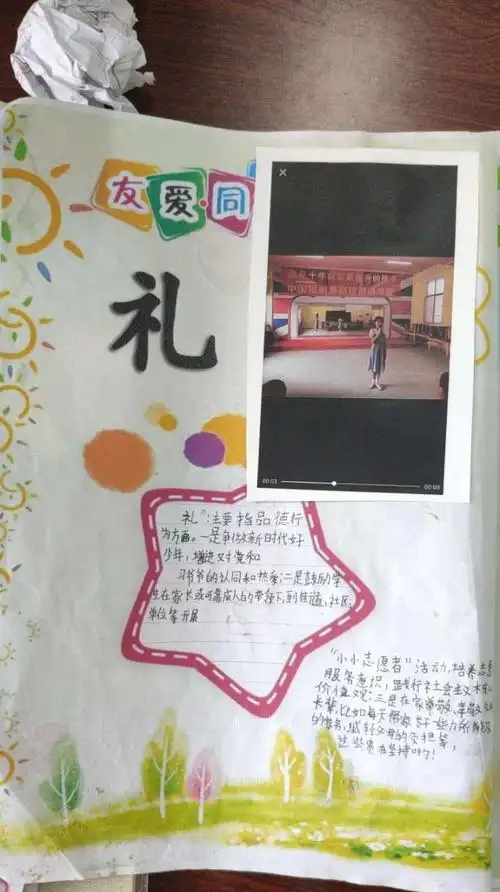 友爱·同
礼
00:03
00:09
礼”:主要指品德行
为方面。一是争做新时代好
少年,增进对党和
习爷爷的认同和热爱;二是鼓励学
生在家长或可靠成人的带领下,到街道、社区、
单位等开展
“小小志愿者”活动,培养志愿
服务意识,践行社会主义
价值观;三是在家孝敬
长辈,比如每天帮家长干一些力所能及
的家务,减轻父母的负担等,
这些贵在坚持哟!